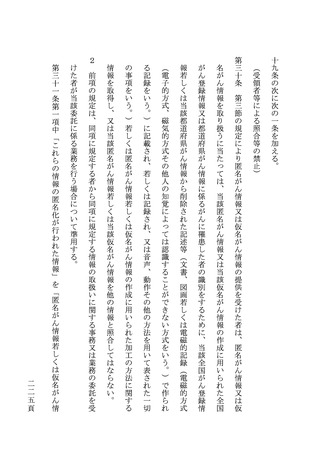 十九条の次に次の一条を加える。
（受領者等による照合等の禁止）
第三十条　第三節の規定により匿名がん情報又は仮名がん情報の提供を受けた者は、匿名がん情報又は仮
名がん情報を取り扱うに当たっては、当該匿名がん情報又は当該仮名がん情報の作成に用いられた全国
がん登録情報又は都道府県がん情報に係るがんに罹患した者の識別をするために、当該全国がん登録情
報若しくは当該都道府県がん情報から削除された記述等（文書、図画若しくは電磁的記録（電磁的方式
（電子的方式、磁気的方式その他人の知覚によっては認識することができない方式をいう。）で作られ
る記録をいう。）に記載され、若しくは記録され、又は音声、動作その他の方法を用いて表された一切
の事項をいう。）若しくは匿名がん情報若しくは仮名がん情報の作成に用いられた加工の方法に関する
情報を取得し、又は当該匿名がん情報若しくは当該仮名がん情報を他の情報と照合してはならない。
２　前項の規定は、同項に規定する者から同項に規定する情報の取扱いに関する事務又は業務の委託を受
けた者が当該委託に係る業務を行う場合について準用する。
第三十一条第一項中「これらの情報の匿名化が行われた情報」を「匿名がん情報若しくは仮名がん情
二二五頁